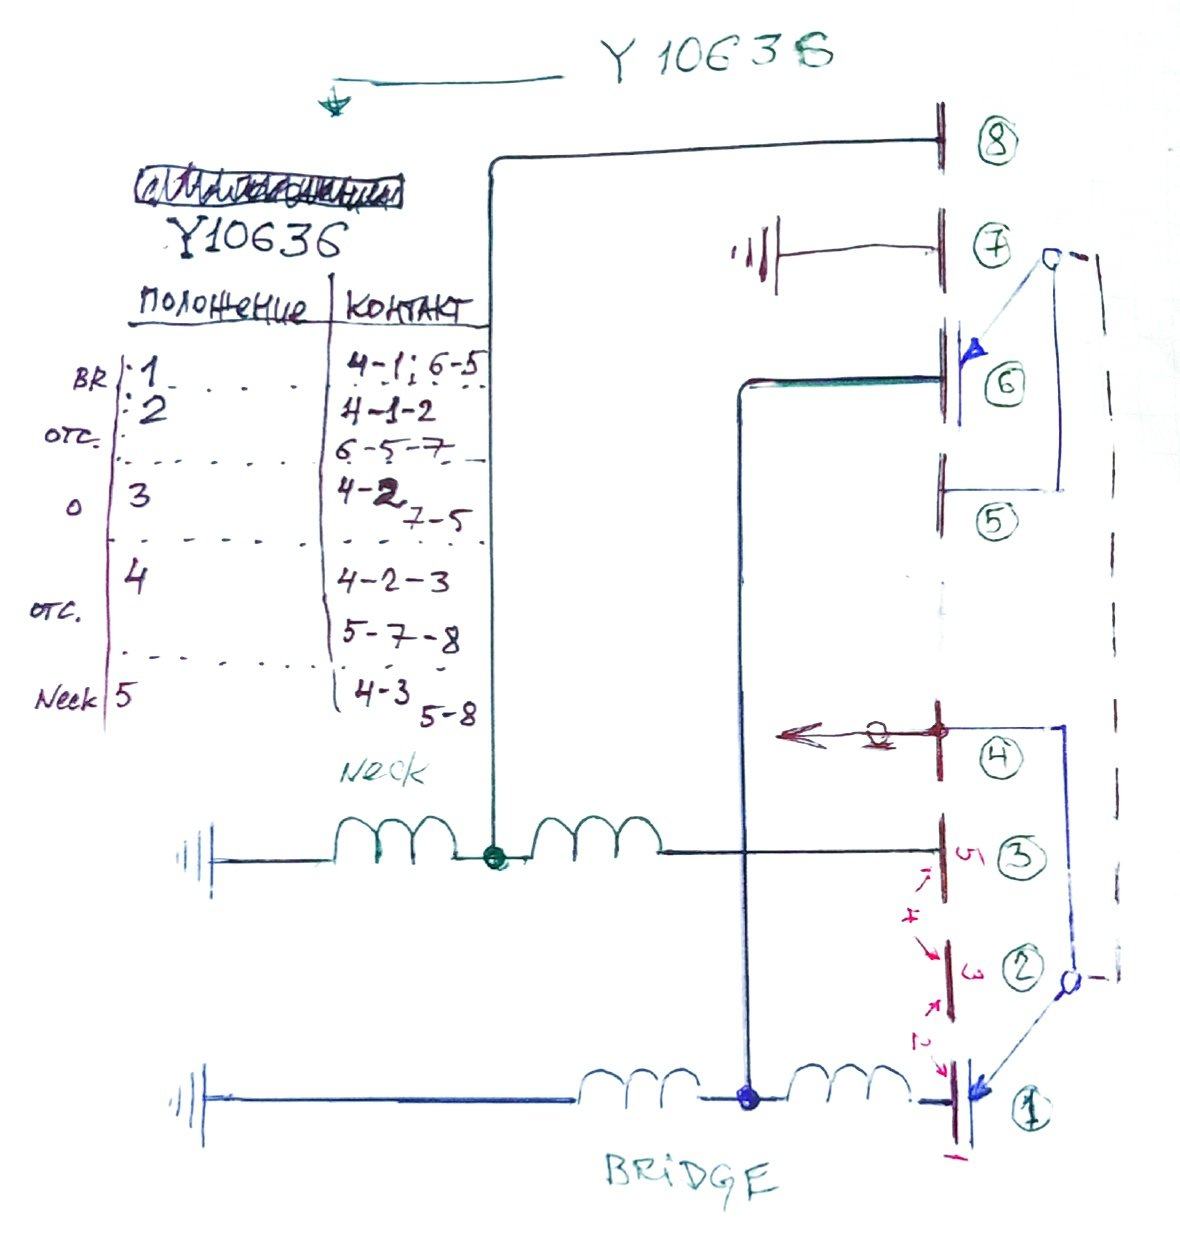 Y 10636
Y10636
ПОЛОЖЕНИЕ КОНТАКТ
BR 1 4-1; 6-5
2 4-1-2
ОТС. 6-5-7
0 3 4-2
7-5
4 4-2-3
ОТС. 5-7-8
Neck 5 4-3
5-8
Neck
BRiDGE
8
7
6
5
4
5 3
4
3 2
2
1
1